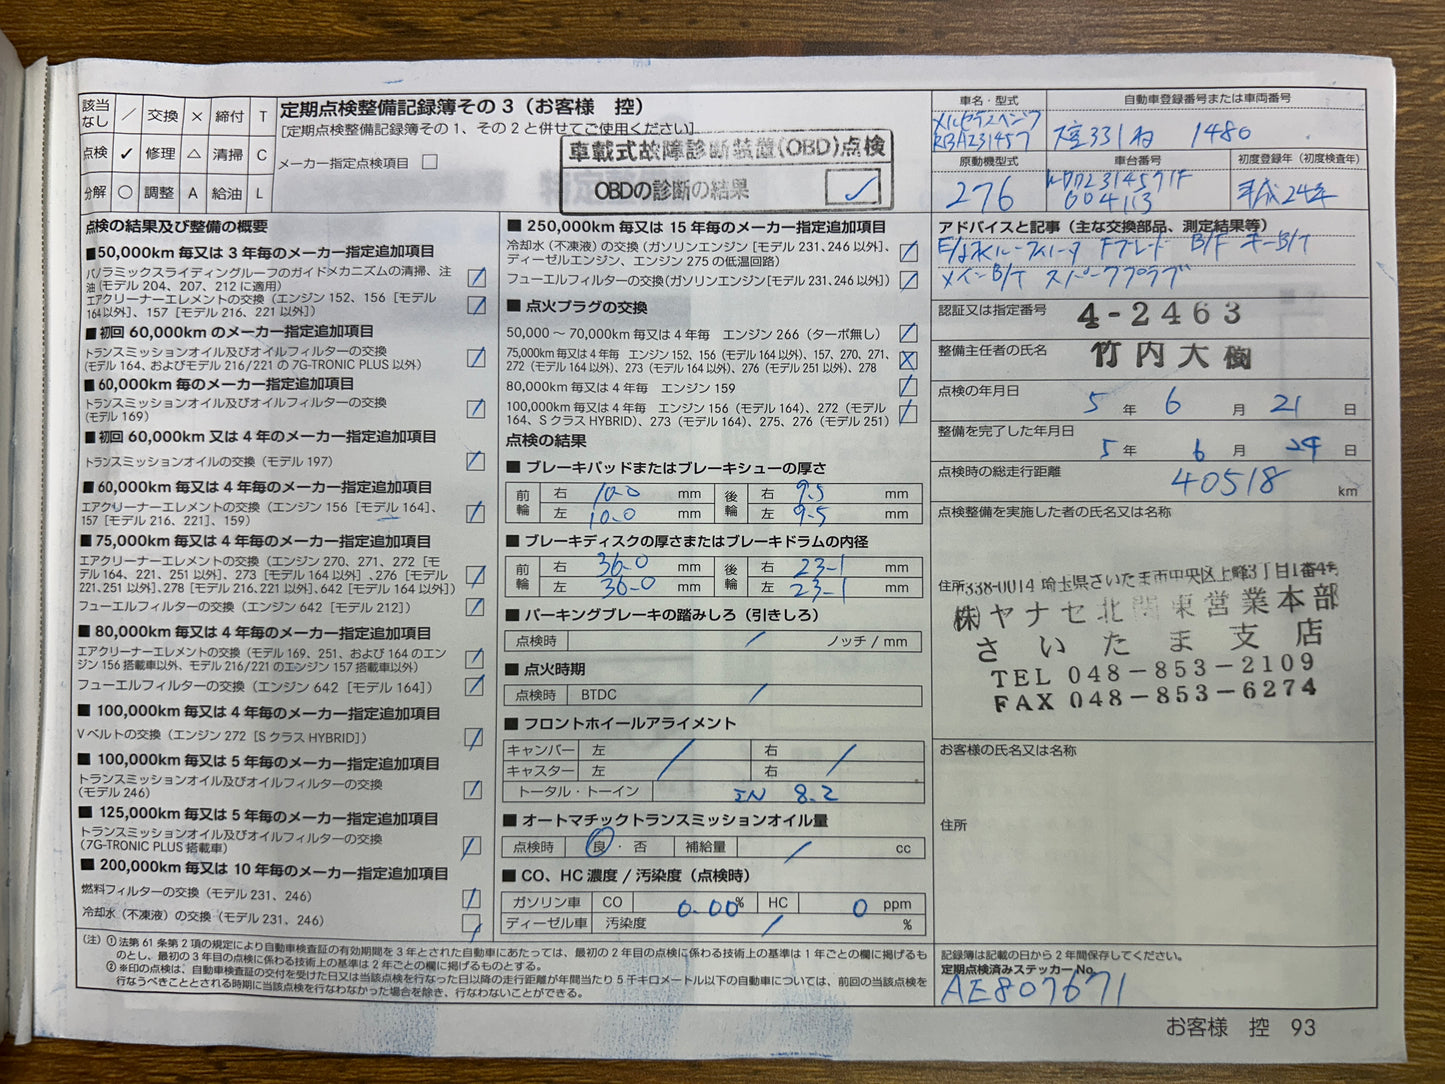 該当なし ／ 交換 × 締付 T
点検 ✓ 修理 △ 清掃 C
分解 ○ 調整 A 給油 L
定期点検整備記録簿その3（お客様 控）
［定期点検整備記録簿その1、その2と併せてご使用ください］
メーカー指定点検項目 □
車載式故障診断装置(OBD)点検
OBDの診断の結果 ✓
車名・型式
メルセデスベンツ
RBA231457
自動車登録番号または車両番号
331 ね 1480
原動機型式
276
車台番号
WDD2314571F
004113
初度登録年（初度検査年）
平成24年
点検の結果及び整備の概要
■50,000km 毎又は 3 年毎のメーカー指定追加項目
パノラミックスライディングルーフのガイドメカニズムの清掃、注
油（モデル 204、207、212 に適用）
エアクリーナーエレメントの交換（エンジン 152、156［モデル
164以外］、157［モデル 216、221 以外］）
■初回 60,000km のメーカー指定追加項目
トランスミッションオイル及びオイルフィルターの交換
（モデル 164、およびモデル 216/221 の 7G-TRONIC PLUS 以外）
■60,000km 毎のメーカー指定追加項目
トランスミッションオイル及びオイルフィルターの交換
（モデル 169）
■初回 60,000km 又は 4 年のメーカー指定追加項目
トランスミッションオイルの交換（モデル 197）
■60,000km 毎又は 4 年毎のメーカー指定追加項目
エアクリーナーエレメントの交換（エンジン 156［モデル 164］、
157［モデル 216、221］、159）
■75,000km 毎又は 4 年毎のメーカー指定追加項目
エアクリーナーエレメントの交換（エンジン 270、271、272［モ
デル 164、221、251 以外］、273［モデル 164 以外］、276［モデル
221、251 以外］、278［モデル 216、221 以外］、642［モデル 164 以外］）
フューエルフィルターの交換（エンジン 642［モデル 212］）
■80,000km 毎又は 4 年毎のメーカー指定追加項目
エアクリーナーエレメントの交換（モデル 169、251、および 164 のエン
ジン 156 搭載車以外、モデル 216/221 のエンジン 157 搭載車以外）
フューエルフィルターの交換（エンジン 642［モデル 164］）
■100,000km 毎又は 4 年毎のメーカー指定追加項目
V ベルトの交換（エンジン 272［S クラス HYBRID］）
■100,000km 毎又は 5 年毎のメーカー指定追加項目
トランスミッションオイル及びオイルフィルターの交換
（モデル 246）
■125,000km 毎又は 5 年毎のメーカー指定追加項目
トランスミッションオイル及びオイルフィルターの交換
（7G-TRONIC PLUS 搭載車）
■200,000km 毎又は 10 年毎のメーカー指定追加項目
燃料フィルターの交換（モデル 231、246）
冷却水（不凍液）の交換（モデル 231、246）
■250,000km 毎又は 15 年毎のメーカー指定追加項目
冷却水（不凍液）の交換（ガソリンエンジン［モデル 231、246 以外］、
ディーゼルエンジン、エンジン 275 の低温回路）
フューエルフィルターの交換（ガソリンエンジン［モデル 231、246 以外］）
■点火プラグの交換
50,000 ～ 70,000km 毎又は 4 年毎 エンジン 266（ターボ無し）
75,000km 毎又は 4年毎 エンジン 152、156（モデル 164 以外）、157、270、271、
272（モデル 164 以外）、273（モデル 164 以外）、276（モデル 251 以外）、278
80,000km 毎又は 4 年毎 エンジン 159
100,000km 毎又は 4 年毎 エンジン 156（モデル 164）、272（モデル
164、S クラス HYBRID）、273（モデル 164）、275、276（モデル 251）
点検の結果
■ブレーキパッドまたはブレーキシューの厚さ
前輪 右 10.0 mm 後輪 右 9.5 mm
左 10.0 mm 左 9.5 mm
■ブレーキディスクの厚さまたはブレーキドラムの内径
前輪 右 36.0 mm 後輪 右 23.1 mm
左 36.0 mm 左 23.1 mm
■パーキングブレーキの踏みしろ（引きしろ）
点検時 ／ ノッチ / mm
■点火時期
点検時 BTDC ／
■フロントホイールアライメント
キャンバー 左 ／ 右 ／
キャスター 左 右
トータル・トーイン IN 8.2
■オートマチックトランスミッションオイル量
点検時 良・否 補給量 ／ cc
■CO、HC 濃度 / 汚染度（点検時）
ガソリン車 CO 0.00% HC 0 ppm
ディーゼル車 汚染度 ／ %
アドバイスと記事（主な交換部品、測定結果等）
E/オイル・フィルータ Fブレード B/F キーB/T
メインB/T スパークプラグ
認証又は指定番号 4-2463
整備主任者の氏名 竹内大樹
点検の年月日 5 年 6 月 21 日
整備を完了した年月日
5 年 6 月 24 日
点検時の総走行距離 40518 km
点検整備を実施した者の氏名又は名称
住所 〒338-0014 埼玉県さいたま市中央区上峰3丁目1番4号
㈱ヤナセ北関東営業本部
さいたま支店
TEL 048-853-2109
FAX 048-853-6274
お客様の氏名又は名称
住所
記録簿は記載の日から 2 年間保存してください。
定期点検済みステッカーNo.
AE807671
（注）①法第 61 条第 2 項の規定により自動車検査証の有効期間を 3 年とされた自動車にあたっては、最初の 2 年目の点検に係わる技術上の基準は 1 年ごとの欄に掲げるも
のとし、最初の 3 年目の点検に係わる技術上の基準は 2 年ごとの欄に掲げるものとする。
②※印の点検は、自動車検査証の交付を受けた日又は当該点検を行なった日以降の走行距離が年間当たり 5 千キロメートル以下の自動車については、前回の当該点検を
行なうべきこととされる時期に当該点検を行なわなかった場合を除き、行なわないことができる。
お客様 控 93